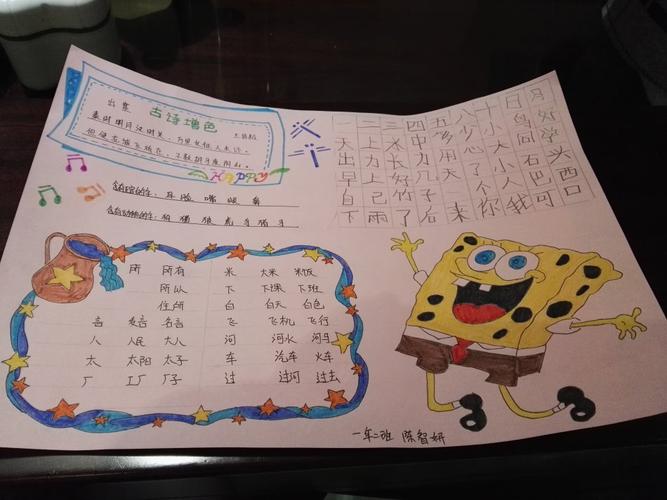 古诗增色
出塞 王昌龄
秦时明月汉时关，万里长征人未还。
但使龙城飞将在，不教胡马度阴山。
HAPPY
耳 脸 嘴 眼 鼻
含有动物的字：狗 猫 狼 虎 牛 猪 羊
一 二 三 四 五 八 十 日 月
天 上 水 中 多 少 小 鸟 好 学
出 力 长 力 用 心 大 同 头
早 上 好 几 天 了 小 石 西
自 己 竹 子 一 个 人 巴 口
下 雨 了 后 来 你 我 可
所 所有 米 大米 米饭
所以 下 下课 下班
住所 白 白天 白色
音 发音 名音 飞 飞机 飞行
人 人民 大人 河 河水 河马
太 太阳 太子 车 汽车 火车
厂 工厂 厂子 过 过河 过去
一年二班 陈智妍